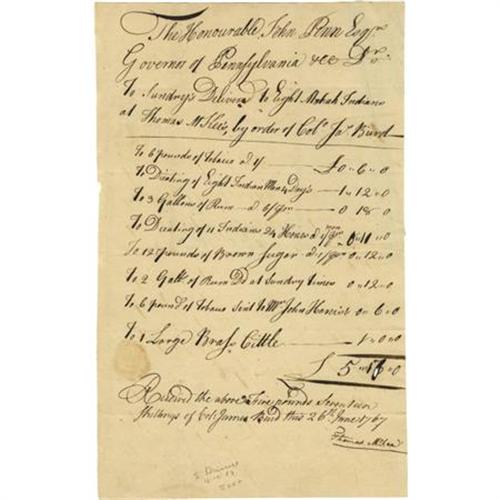 The Honourable John Penn Esqr
Governor of Pennsylvania &cc Dr
To Sundrys Deliverd to Eight Mohak Indians
at Thomas McKees, by order of Colo Jas Burd
To 6 pounds of Tobaco a 1/ — £0 „ 6 „ 0
To Dieting of Eight Indian Men 4 Days — 1 „ 12 „ 0
To 3 Gallons of Rum a 6/ — 0 18 „ 0
To Dieting of 11 Indians 24 Hours a 1/ 0 „ 11 „ 0
To 12 pounds of Brown Sugar a 1/ 0 „ 12 „ 0
To 2 Galls of Rum Dd at Sundry times 0 „ 12 „ 0
To 6 pounds of Tobaco Sent to Mr John Harris 0 „ 6 „ 0
To 1 Large Brass Cittle — 1 „ 0 „ 0
£ 5 „ „ 0
Received the above Five pounds Seventeen
Shillings of Colo James Burd this 26th June 1767
Thomas McKee